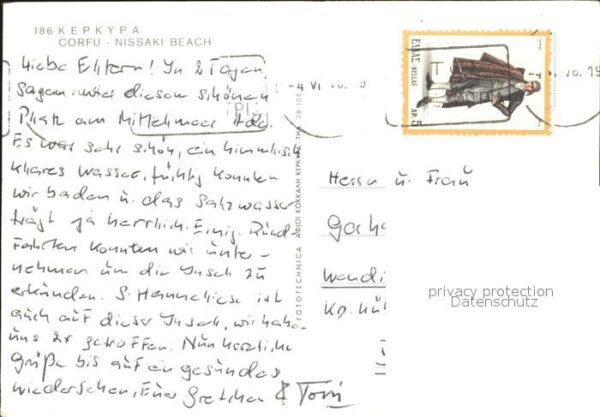 186 ΚΕΡΚΥΡΑ
CORFU - NISSAKI BEACH
Liebe Eltern! In 2 Tagen
sagen wir diesen schönen
Platz am Mittelmeer Ade.
Es war sehr schön, ein himmlisch
klares Wasser, tüchtig konnten
wir baden u. das Salzwasser
trägt ja herrlich. Einig. Rund
Fahrten konnten wir unter-
nehmen um die Insel zu
erkunden. S. ist
auch auf dieser Insel, wir habe
uns 2x getroffen. Nun herzliche
Grüße bis auf ein gesundes
Wiedersehen, Eure Gretchen & Toni
FOTOTECHNICA ΑΦΟΙ ΚΟΚΚΑΛΗ ΚΕΡΚΥΡΑ ΤΗΛ.
-4 VI 76. 19
76. 19
ΕΛΛΑΣ-HELLAS
ΔΡ. 5
Herrn u. Frau
Gerh
Wendi
Kr.
privacy protection
Datenschutz